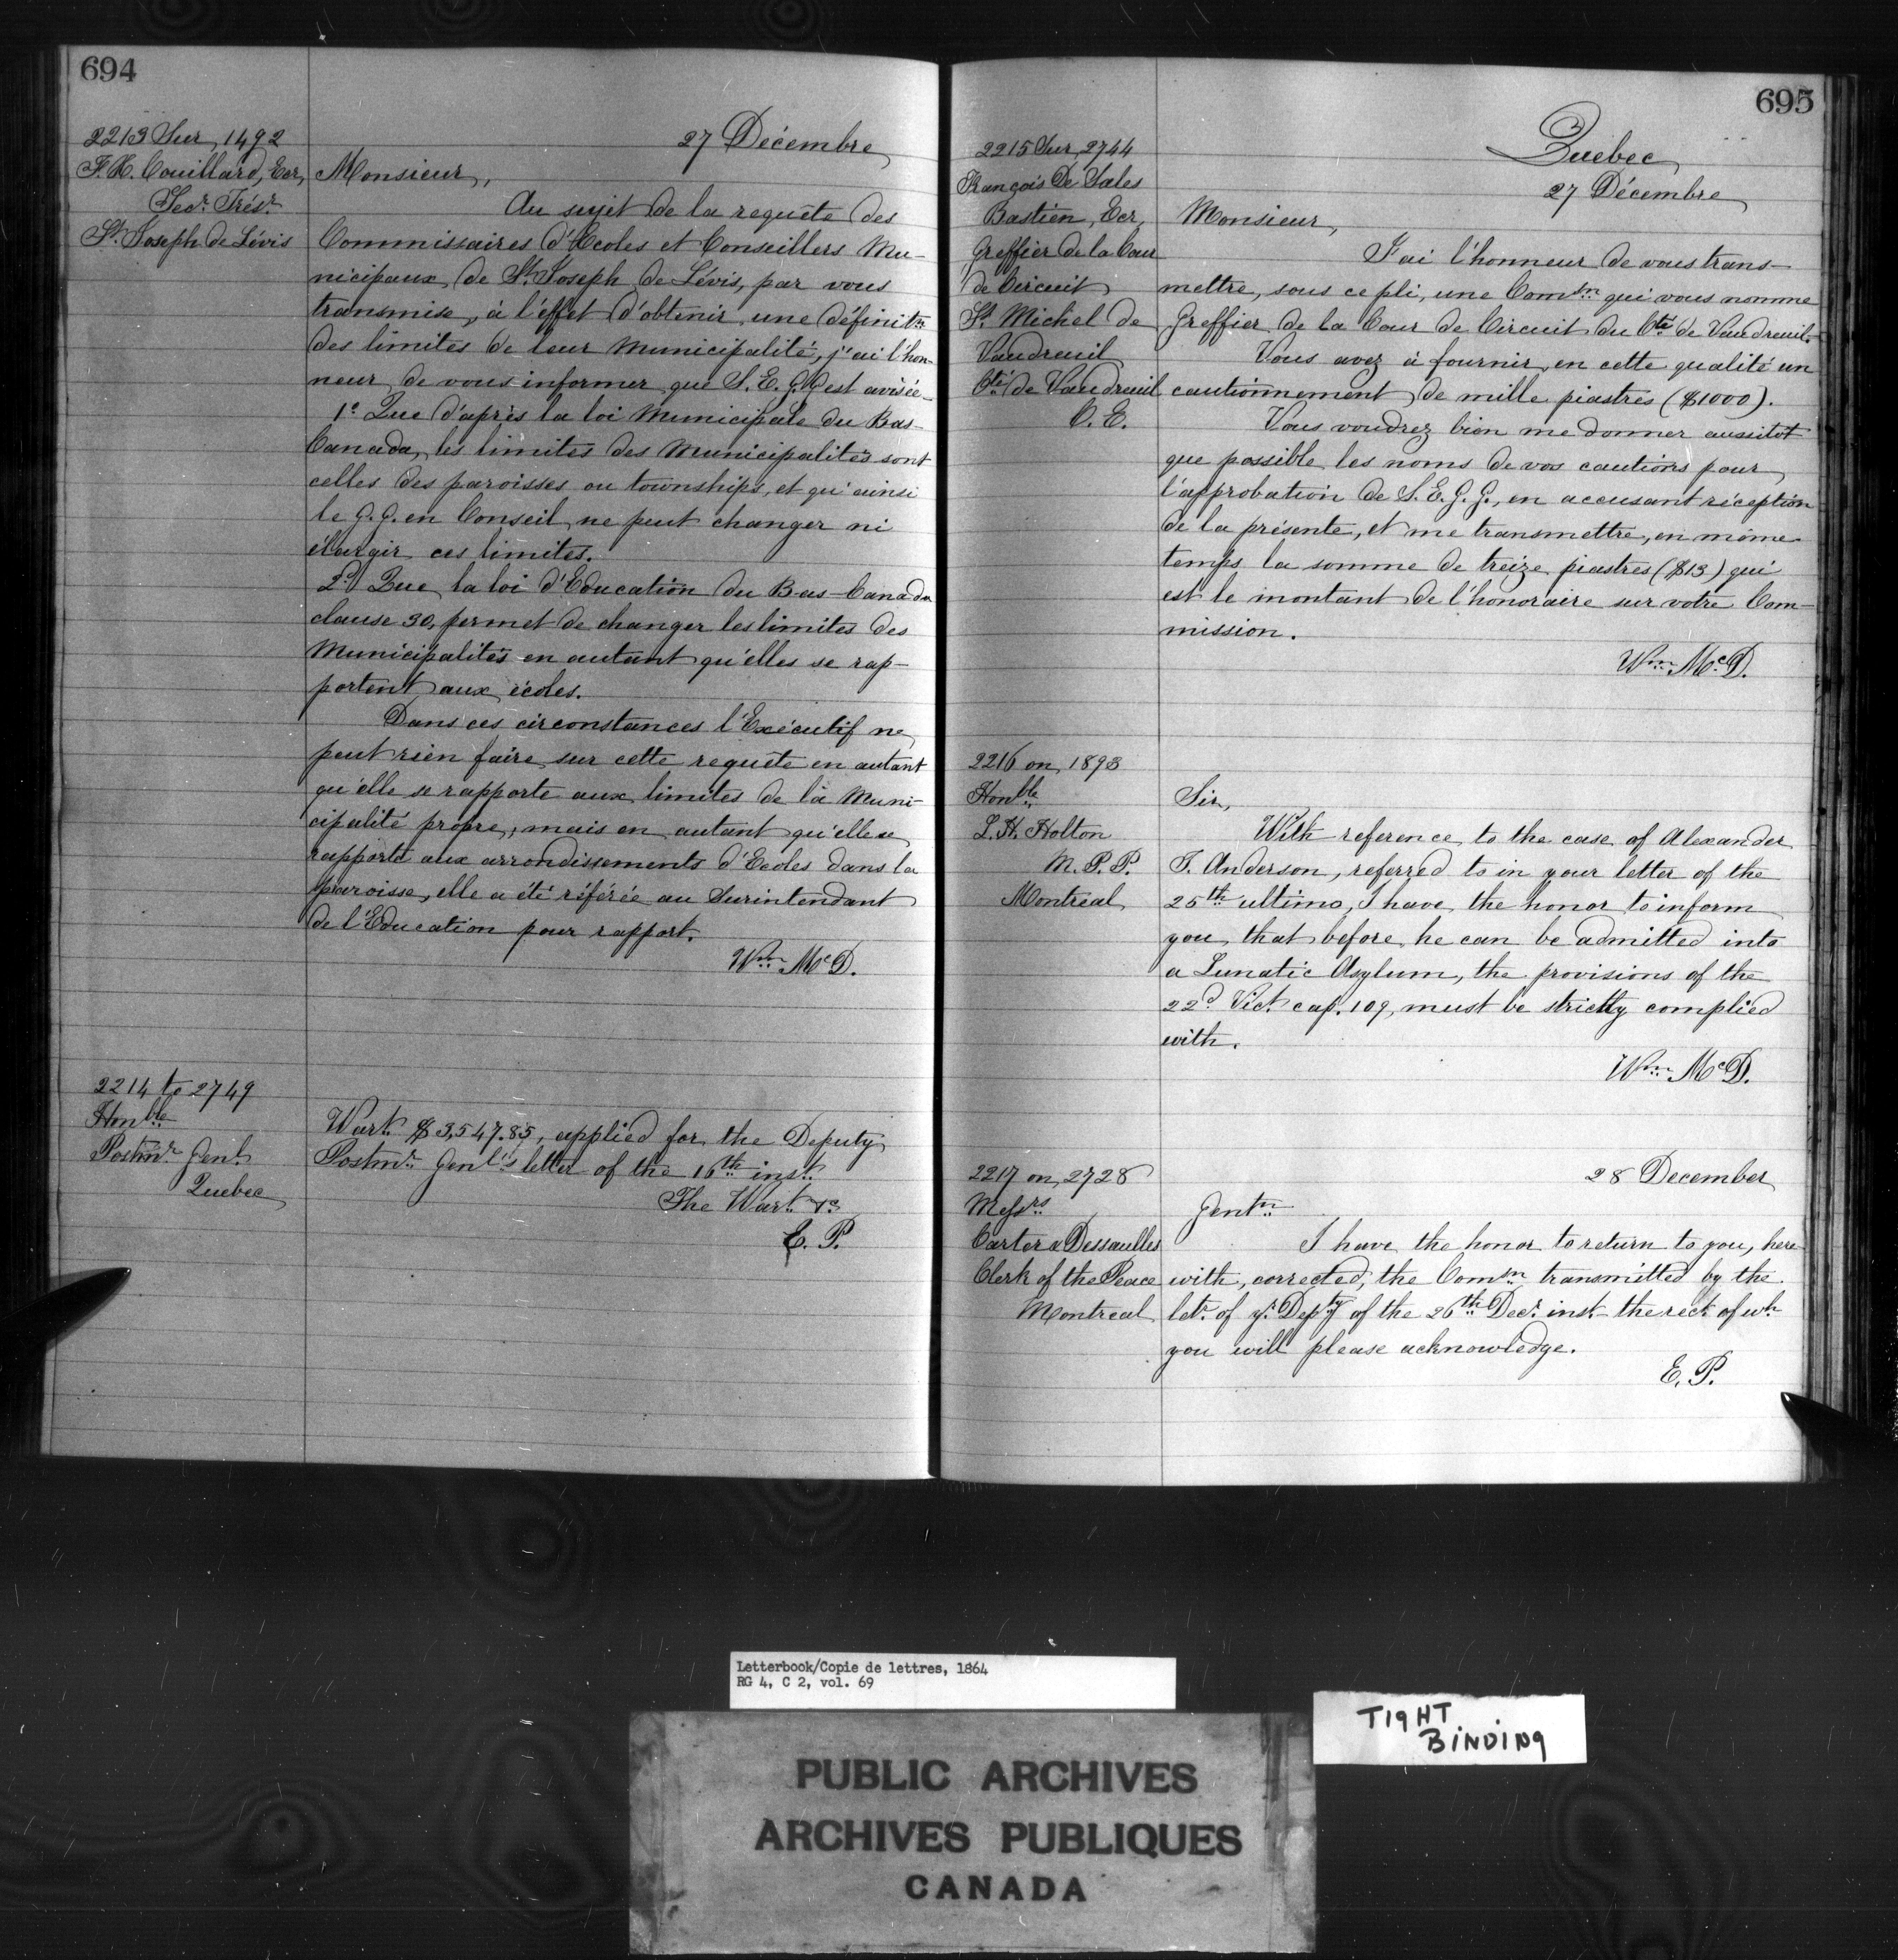 694
2213 Sur, 1492
F. H. Couillard, Ecr,
Secr. Trésr.
St. Joseph de Lévis
27 Décembre
Monsieur,
Au sujet de la requête des
Commissaires d'Ecoles et Conseillers Mu-
nicipaux de St. Joseph de Lévis, par vous
transmise, à l'effet d'obtenir une définitn.
des limites de leur Municipalité, j'ai l'hon-
neur de vous informer que S. E. G. G. est avisée_
1o. Que d'après la loi Municipale du Bas-
Canada, les limites des Municipalités sont
celles des paroisses ou townships, et qu'ainsi
le G. G. en Conseil ne peut changer ni
élargir ces limites.
2o. Que la loi d'Education du Bas-Canada
clause 30, permet de changer les limites des
Municipalités en autant qu'elles se rap-
portent aux écoles.
Dans ces circonstances l'Exécutif ne
peut rien faire sur cette requête en autant
qu'elle se rapporte aux limites de la Muni-
cipalité propre, mais en autant qu'elle se
rapporte aux arrondissements d'Ecoles dans la
paroisse, elle a été référée au Surintendant
de l'Education pour rapport.
Wm. McD.
2214 to 2749
Honble.
Postmr. Genl.
Quebec
Wart. $3,547.85, applied for the Deputy
Postmr. Genl's letter of the 16th inst.
The Wart. &c
E. P.
695
Quebec
27 Décembre
2215 Sur, 2744
François De Sales
Bastien, Ecr,
Greffier de la Cour
de Circuit
St. Michel de
Vaudreuil
Cté. de Vaudreuil
C. E.
Monsieur,
J'ai l'honneur de vous trans-
mettre, sous ce pli, une Comsn. qui vous nomme
Greffier de la Cour de Circuit du Cté. de Vaudreuil.
Vous avez à fournir en cette qualité un
cautionnement de mille piastres ($1000).
Vous voudrez bien me donner aussitot
que possible les noms de vos cautions pour
l'approbation de S. E. G. G., en accusant réception
de la présente, et me transmettre, en même
temps la somme de treize piastres ($13) qui
est le montant de l'honoraire sur votre Com-
mission.
Wm. McD.
2216 on, 1893
Honble.
L. H. Holton
M. P. P.
Montreal
Sir,
With reference to the case of Alexander
T. Anderson, referred to in your letter of the
25th. ultimo, I have the honor to inform
you that before he can be admitted into
a Lunatic Asylum, the provisions of the
22d. Vict. cap. 109, must be strictly complied
with.
Wm. McD.
2217 on, 2728
Messrs
Carter & Dessaulles
Clerk of the Peace
Montreal
28 December
Gentn.
I have the honor to return to you, here
with, corrected, the Comsn. transmitted by the
letr. of yr. Depty. of the 26th. Decr. inst. the rect. of wh.
you will please acknowledge.
E. P.
Letterbook/Copie de lettres, 1864
RG 4, C 2, vol. 69
TIGHT
BINDING
PUBLIC ARCHIVES
ARCHIVES PUBLIQUES
CANADA